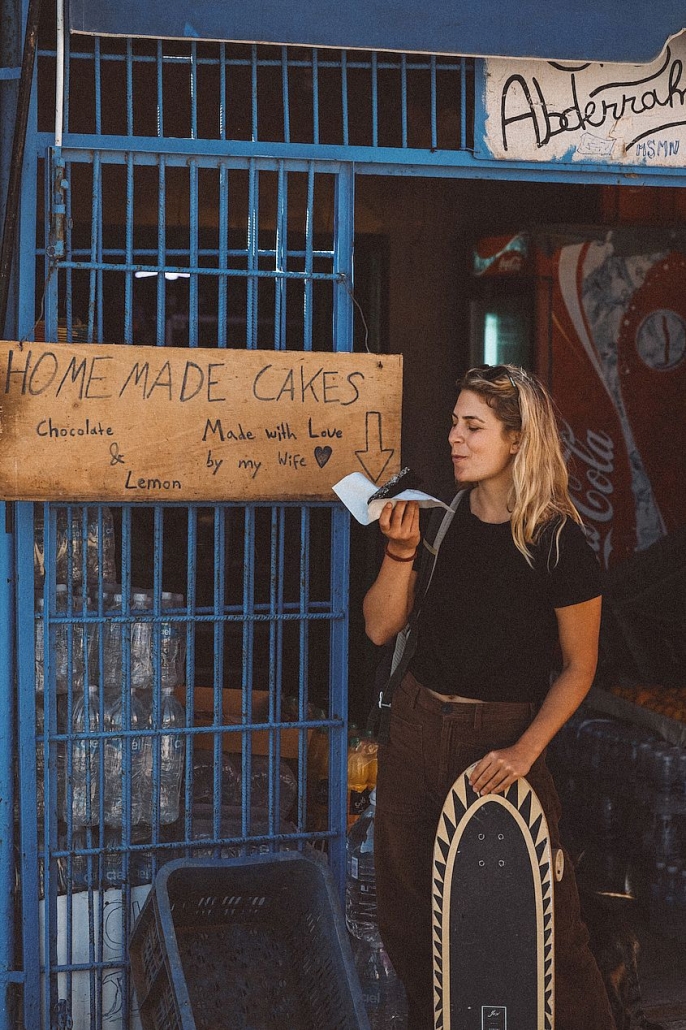 Abderrah
MSMN
HOMEMADE CAKES
Chocolate
&
Lemon
Made with Love
by my Wife
Coca-Cola